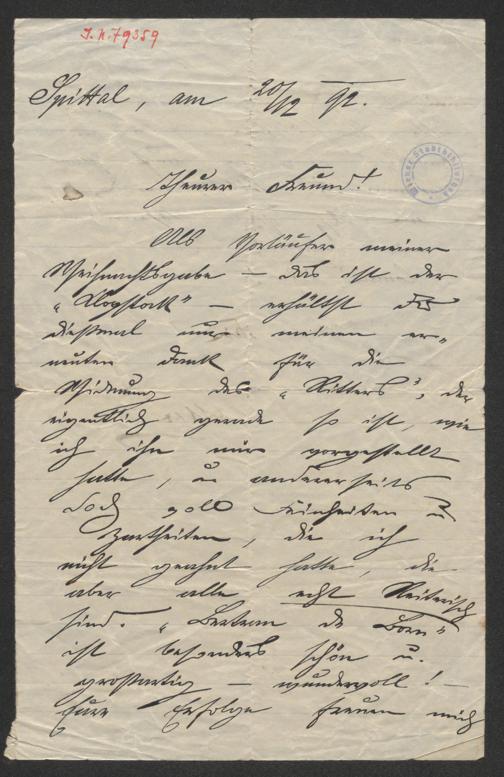 J.N. 79359
Spittal, am 20/12 92.
Theurer Freund!
Als Vorläufer meiner
Weihnachtsgabe — das ist der
" — erhältst Du
diesmal nur meinen er-
neuten Dank für die
Widmung des „Ritters", der
eigentlich gerade so ist, wie
ich ihn mir vorgestellt
hatte, u andererseits
doch voll Feinheiten u
Zartheiten, die ich
nicht geahnt hatte, die
aber alle echt Reiterisch
sind. „Bertran de Born"
ist besonders schön u.
grossartig — wundervoll! —
Eure Erfolge freuen mich